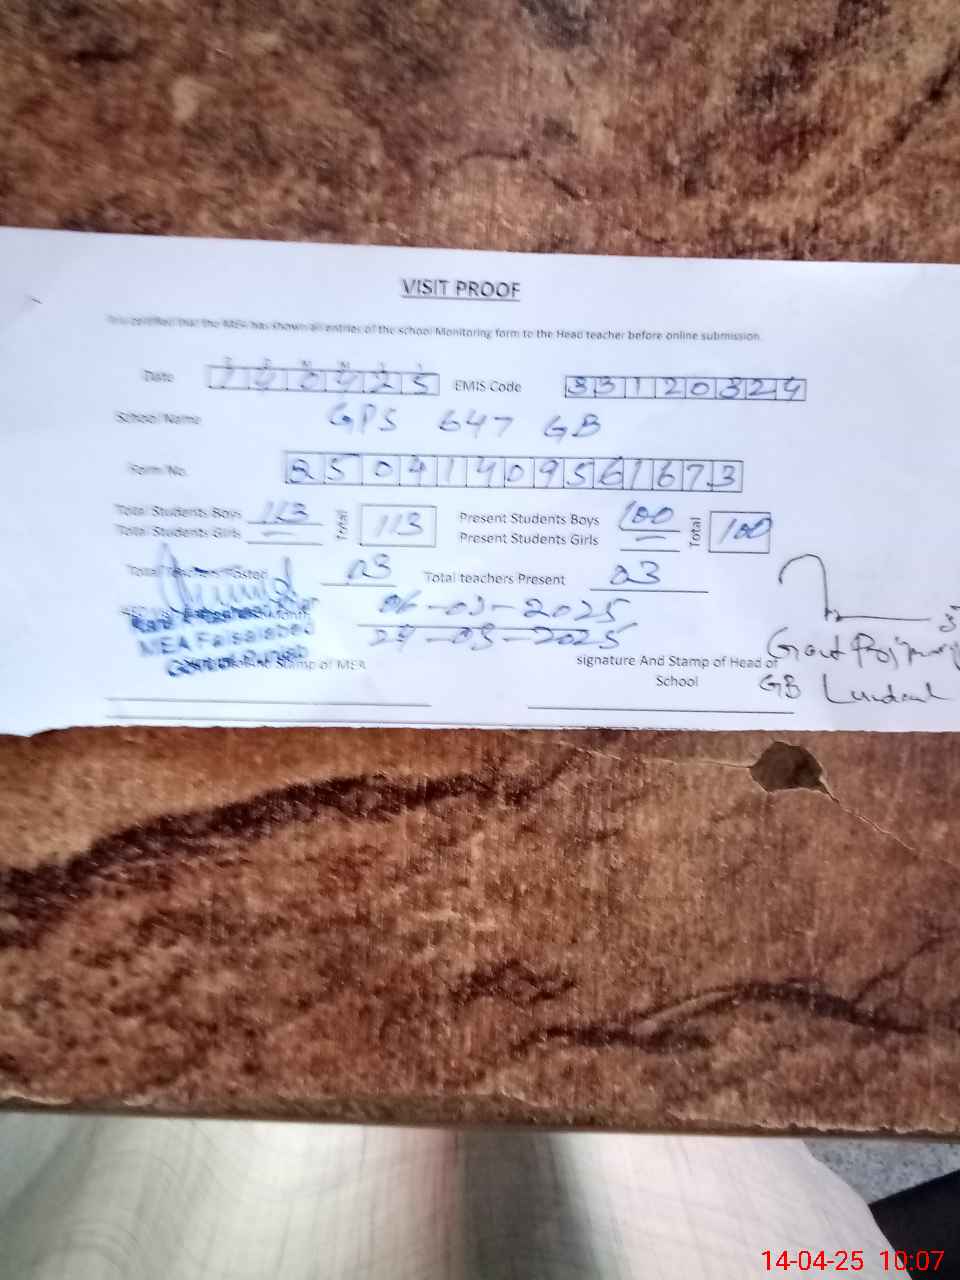 VISIT PROOF
It is certified that the MEA has shown all entries of the school Monitoring form to the Head teacher before online submission.
Date D D M M Y Y 140425 EMIS Code 33120324
School Name GPS 647 GB
Form No. 25041409561673
Total Students Boys 113 Total 113 Present Students Boys 100 Total 100
Total Students Girls — Present Students Girls —
Total Teachers 03 Total teachers Present 03
06-03-2025
MEA Faisalabad
Stamp of MEA signature And Stamp of Head of
School
Govt Primary
GB
14-04-25 10:07